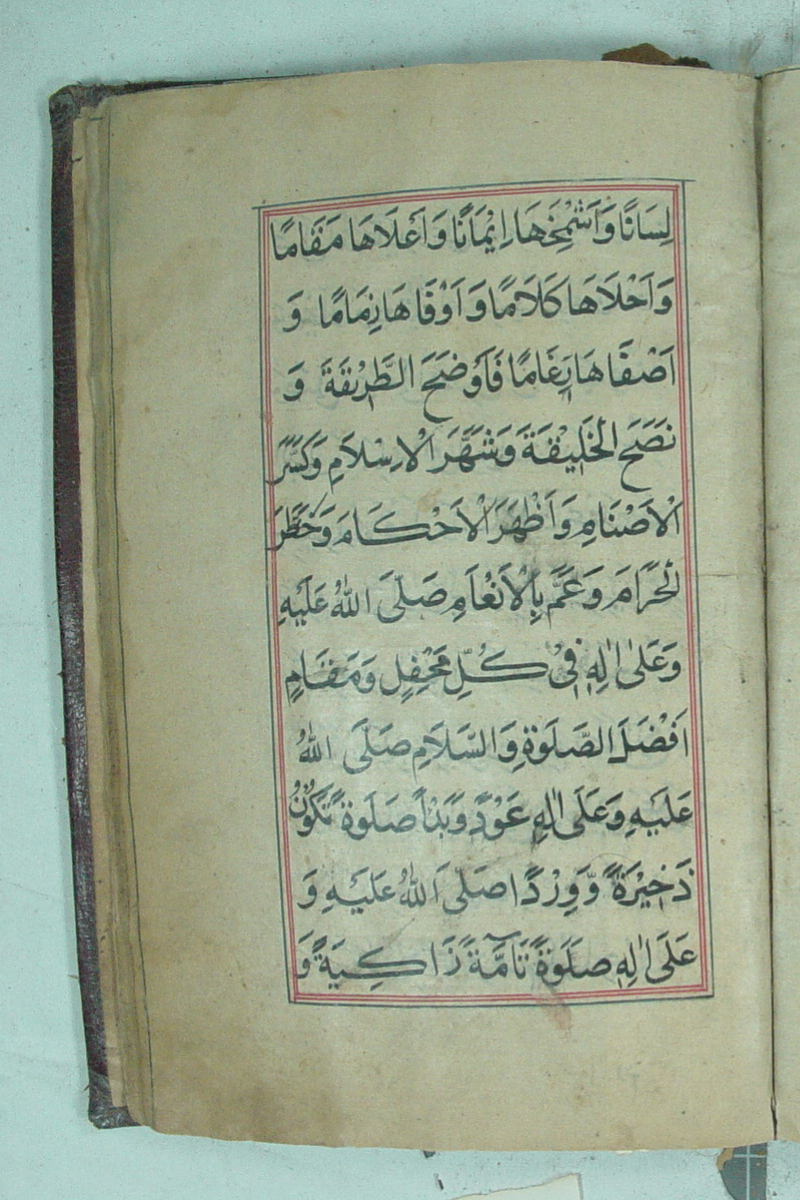 لِسَانًا وَاَشْمَخِهَا اِيْمَانًا وَاَعْلَاهَا مَقَامًا
وَاَحْلَاهَا كَلَامًا وَاَوْفَاهَا ذِمَامًا وَ
اَصْفَاهَا رَغَامًا فَاَوْضَحَ الطَّرِيْقَةَ وَ
نَصَحَ الْخَلِيْقَةَ وَشَهَّرَ الْاِسْلَامِ وَكَسَّرَ
الْاَصْنَامِ وَاَظْهَرَ الْاَحْكَامَ وَحَظَّرَ
الْحَرَامَ وَعَمَّ بِالْاَنْعَامِ صَلَّى اللّٰهُ عَلَيْهِ
وَعَلٰى اٰلِهٖ فِيْ كُلِّ مَحْفِلٍ وَمَقَامٍ
اَفْضَلَ الصَّلٰوةِ وَالسَّلَامِ صَلَّى اللّٰهُ
عَلَيْهِ وَعَلَى اٰلِهٖ عَوْدً وَّبَدْاً صَلٰوةً تَكُوْنُ
ذَخِيْرَةً وَّوِرْدًا صَلَّى اللّٰهُ عَلَيْهِ وَ
عَلَى اٰلِهٖ صَلٰوةً تَآمَّةً زَاكِيَةً وَ